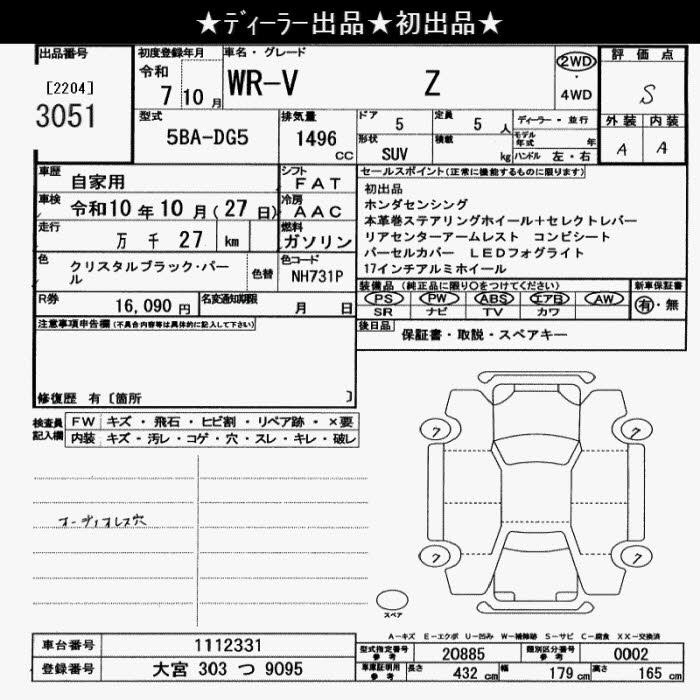 ★ディーラー出品★初出品★
出品番号
[2204]
3051
初度登録年月
令和
7 10 月
車名・グレード
WR-V Z
2WD
・
4WD
評価点
S
外装 内装
A A
型式
5BA-DG5
排気量
1496
CC
ドア
5
定員
5 人
形状
SUV
積載
kg
ディーラー・並行
モデル年式 年
ハンドル 左・右
車歴
自家用
シフト
FAT
車検
令和10年10月(27日)
冷房
AAC
走行
万 千 27 km
燃料
ガソリン
色
クリスタルブラック・パール
色替
色コード
NH731P
R券
16,090 円
名変通知期限
月 日
セールスポイント(正常に機能するものに限ります)
初出品
ホンダセンシング
本革巻ステアリングホイール+セレクトレバー
リアセンターアームレスト コンビシート
パーセルカバー LEDフォグライト
17インチアルミホイール
装備品(純正品に限り○をつけてください)
PS PW ABS エアB AW
SR ナビ TV カワ
新車保証書
有・無
後日品
保証書・取説・スペアキー
注意事項申告欄(不具合内容等は具体的に記入して下さい)
修復歴 有〔箇所 〕
検査員記入欄
FW キズ・飛石・ヒビ割・リペア跡・×要
内装 キズ・汚レ・コゲ・穴・スレ・キレ・破レ
オーディオレス穴
7 7
7 7
スペア
A-キズ E-エクボ U-凹み W-補修跡 S-サビ C-腐食 XX-交換済
車台番号 1112331
登録番号 大宮 303 つ 9095
型式指定番号参考 20885 類別区分番号参考 0002
車庫証明用参考 長さ 432 cm 幅 179 cm 高さ 165 cm